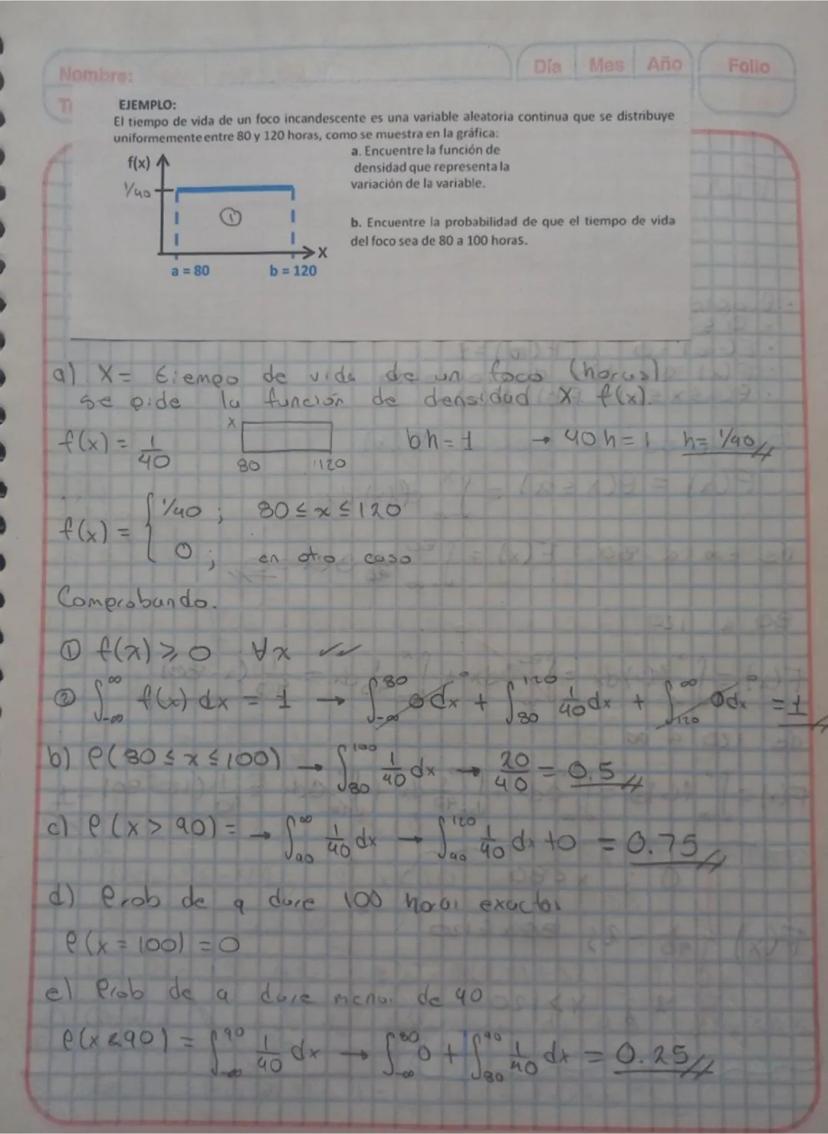 Nombre:
Día Mes Año Folio
EJEMPLO:
El tiempo de vida de un foco incandescente es una variable aleatoria continua que se distribuye
uniformemente entre 80 y 120 horas, como se muestra en la gráfica:
f(x)
1/40
①
X
a = 80 b = 120
a. Encuentre la función de
densidad que representa la
variación de la variable.
b. Encuentre la probabilidad de que el tiempo de vida
del foco sea de 80 a 100 horas.
a) X = tiempo de vida de un foco (horas)
se pide la función de densidad X f(x).
f(x) = 1/40 x 80 120 bh = 1 → 40h = 1 h = 1/40
f(x) = { 1/40 ; 80 ≤ x ≤ 120
0 ; en otro caso
Comprobando.
① f(x) ≥ 0 ∀x ✓✓
② ∫_{-∞}^{∞} f(x) dx = 1 → ∫_{-∞}^{80} 0dx + ∫_{80}^{120} 1/40 dx + ∫_{120}^{∞} 0dx = 1
b) P(80 ≤ x ≤ 100) → ∫_{80}^{100} 1/40 dx → 20/40 = 0.5
c) P(x > 90) = → ∫_{90}^{∞} 1/40 dx → ∫_{90}^{120} 1/40 dx + 0 = 0.75
d) Prob de q dure 100 horas exactas
P(x = 100) = 0
e) Prob de q dure menos de 90
P(x < 90) = ∫_{-∞}^{90} 1/40 dx → ∫_{-∞}^{80} 0 + ∫_{80}^{90} 1/40 dx = 0.25